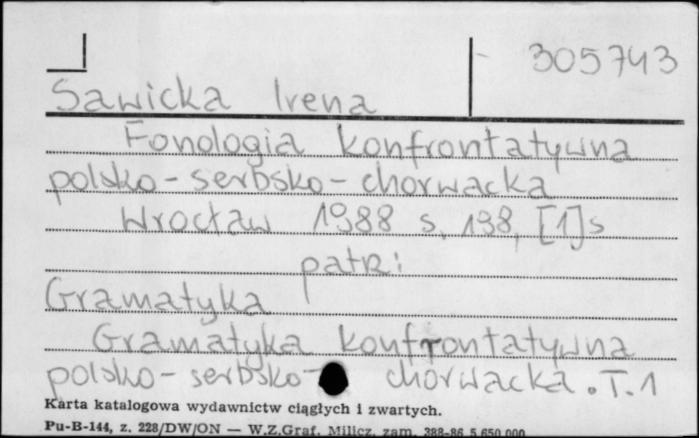 305743
Sawicka Irena
Fonologia konfrontatywna
polsko-serbsko-chorwacka
Wrocław 1988 s. 198, [1]s
patrz:
Gramatyka
Gramatyka konfrontatywna
polsko-serbsko- chorwacka. T.1
Karta katalogowa wydawnictw ciągłych i zwartych.
Pu-B-144, z. 228/DW/ON — W.Z.Graf. Milicz, zam. 388-86 5.650.000